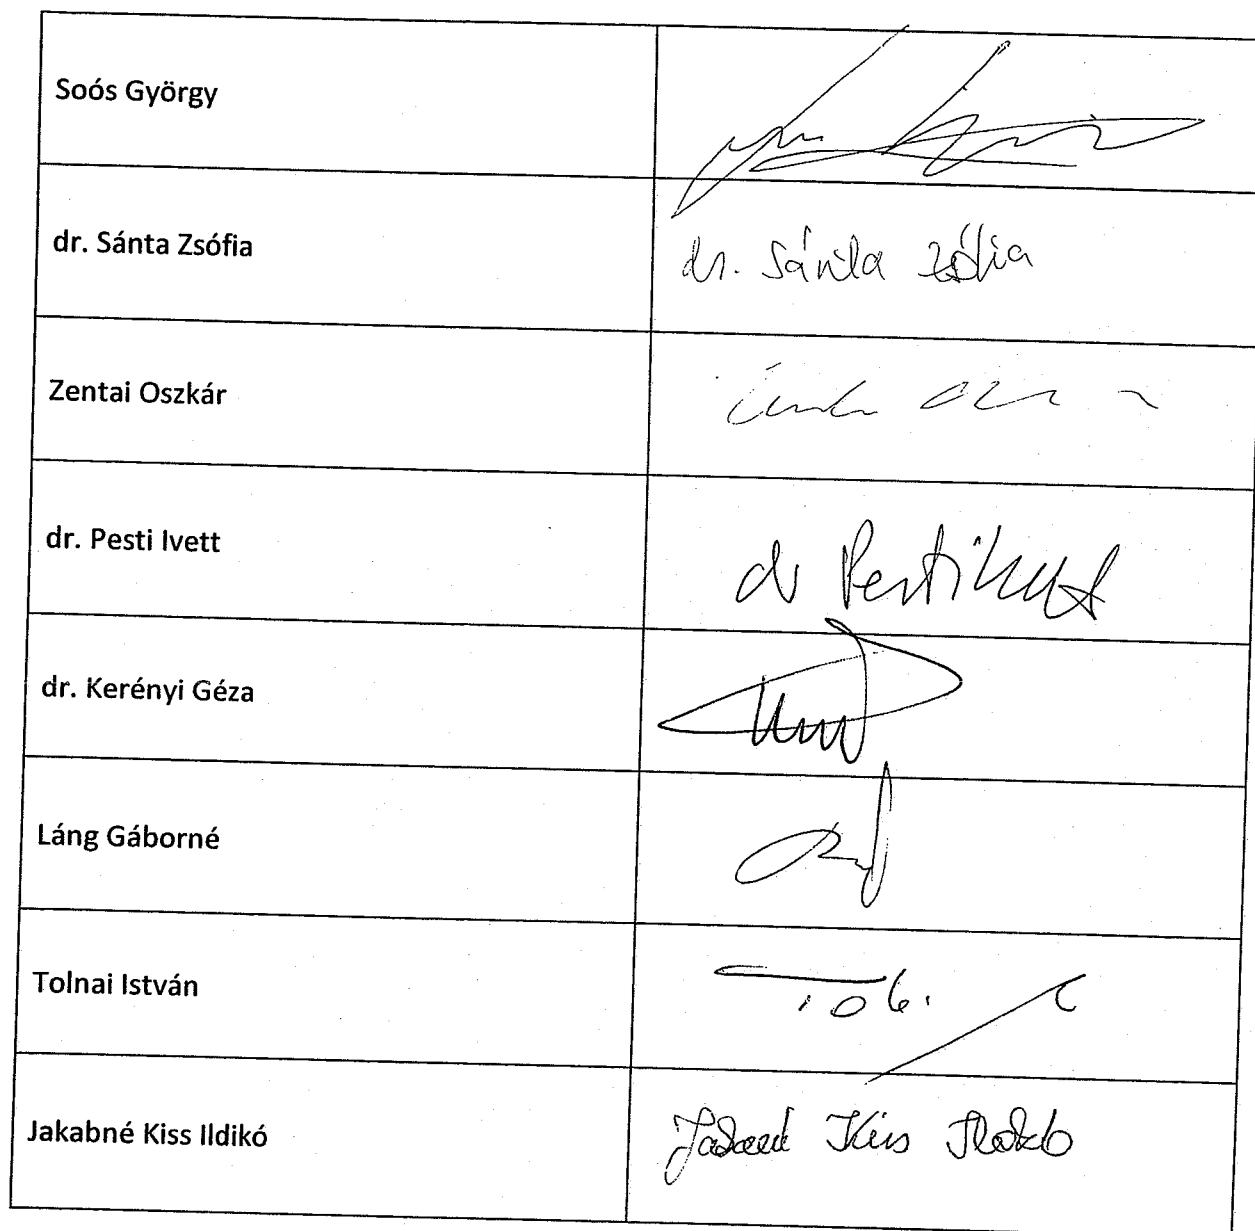 Soós György
dr. Sánta Zsófia
dr. Sánta Zsófia
Zentai Oszkár
dr. Pesti Ivett
dr Pesti Ivett
dr. Kerényi Géza
Láng Gáborné
Tolnai István
Jakabné Kiss Ildikó
Jakabné Kiss Ildikó